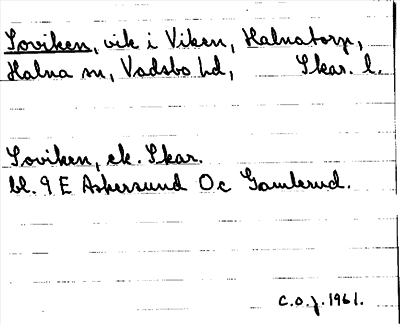 Soviken, vik i Viken, Halnatorp,
Halna sn, Vadsbo hd, Skar. l.
Soviken, ek. Skar.
bl. 9 E Askersund Öc Gamlerud.
C.O.J. 1961.